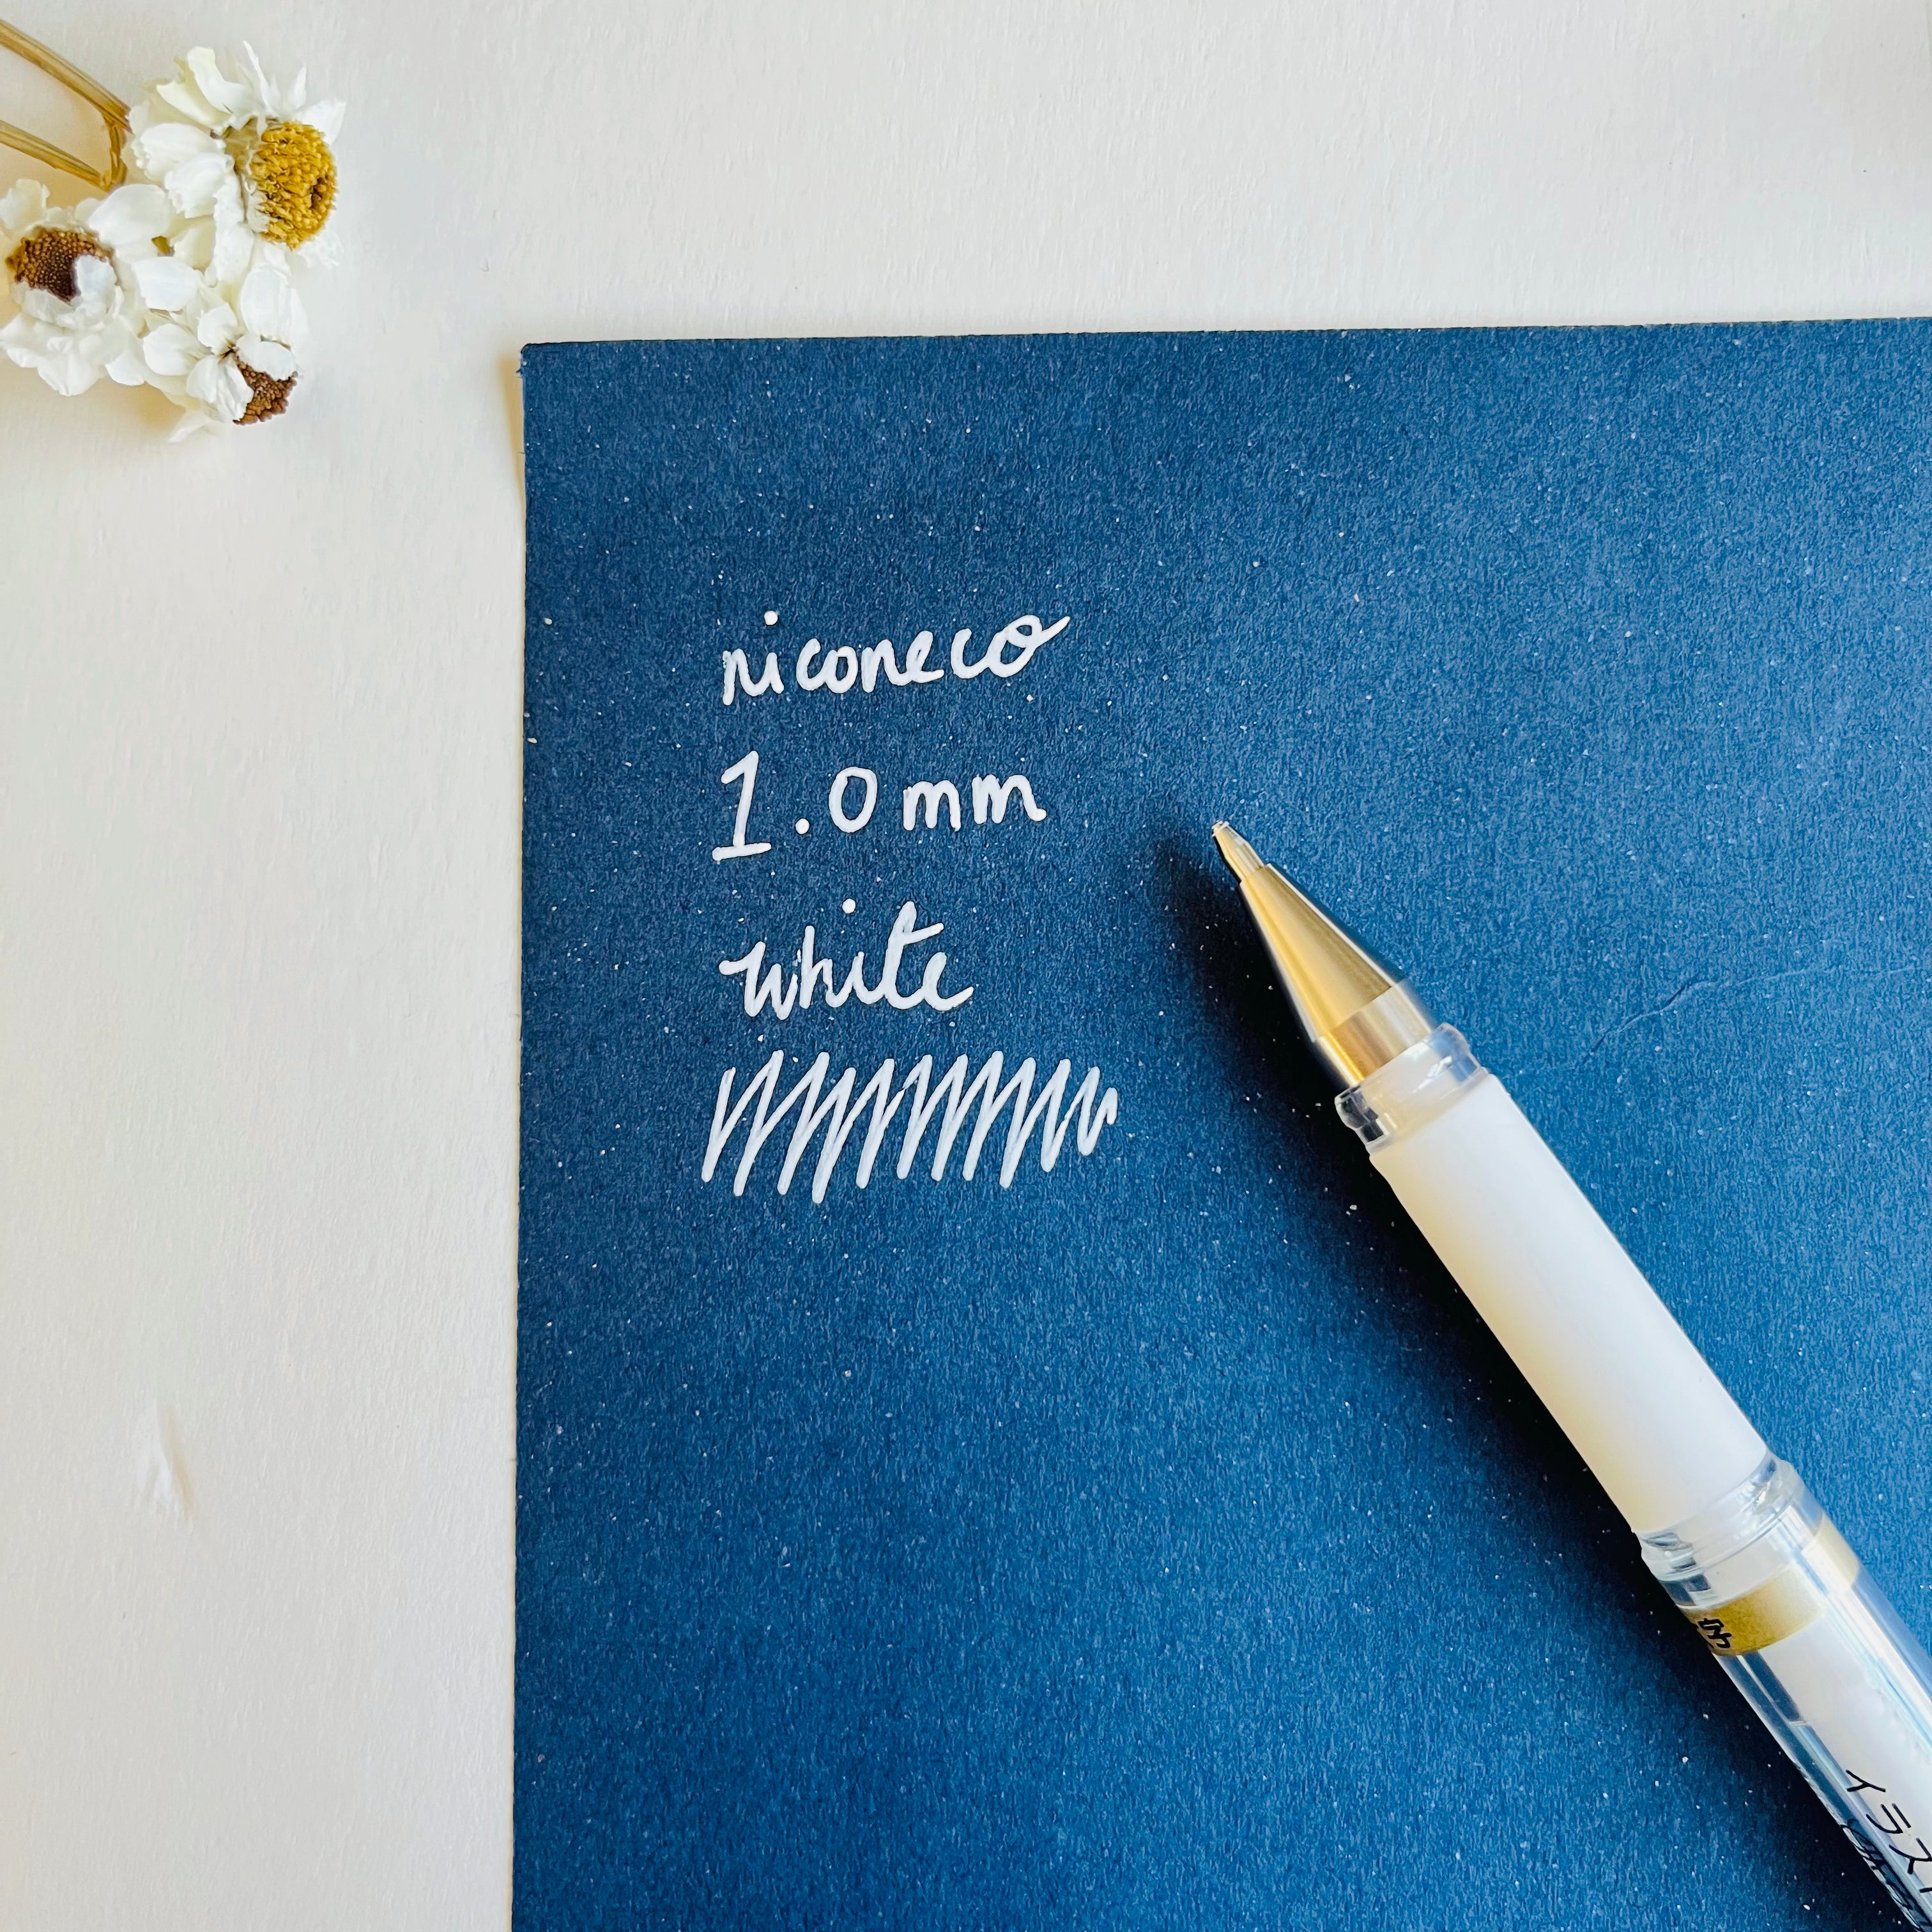 niconeco
1.0mm
white
イラス